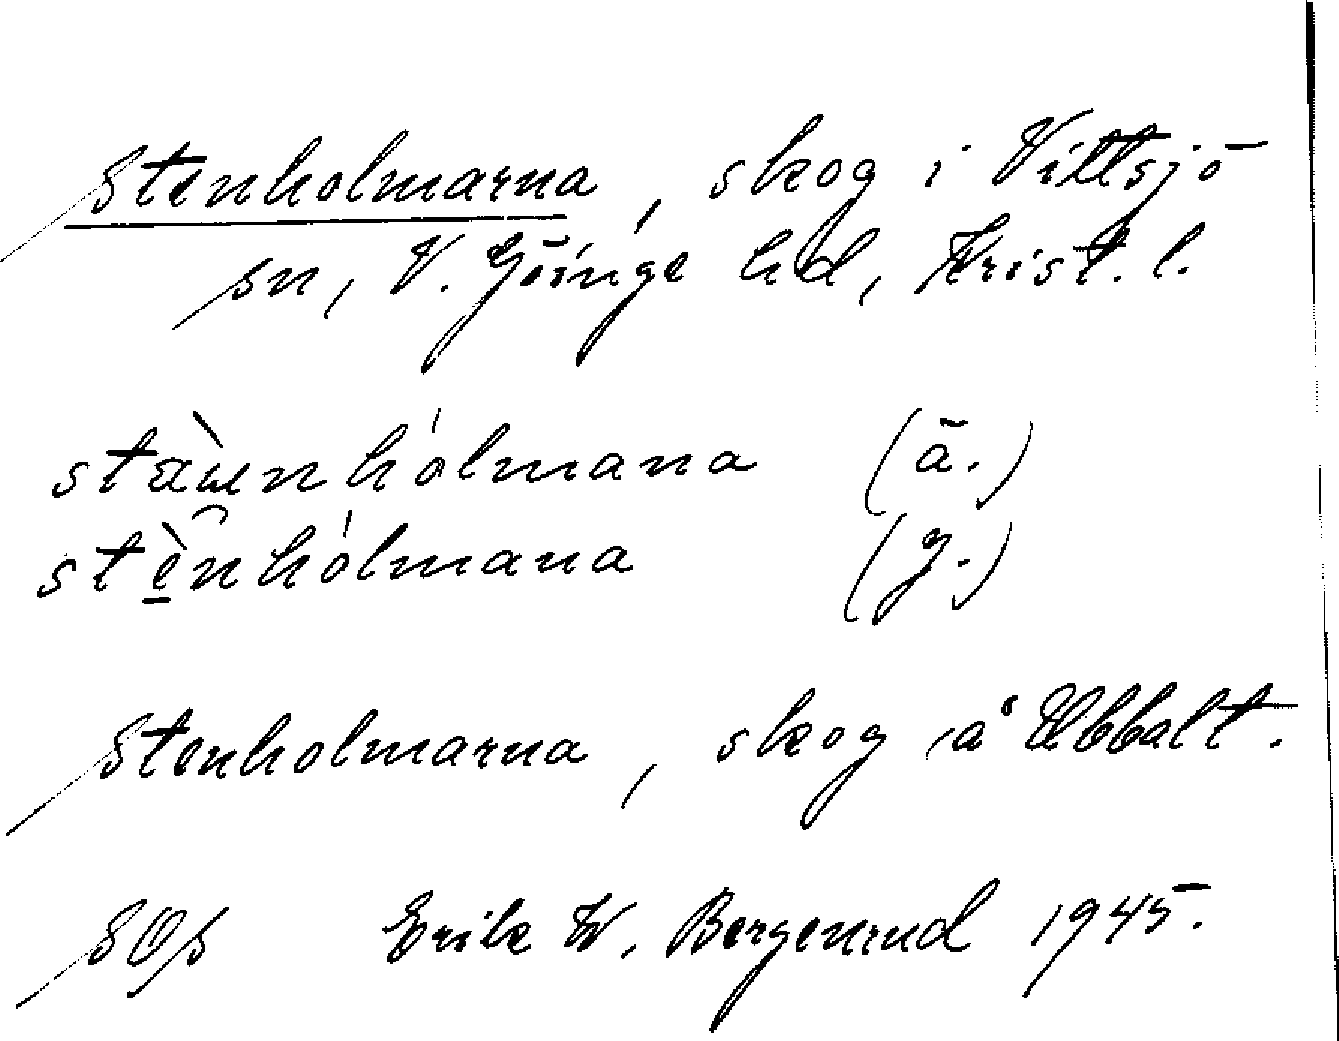 Stenholmarna, skog i Vittsjö
sn, V. Göinge hd, Krist. l.
stæ̀ɯnhólmana (ä.)
stè̱nhólmana (y.)
Stenholmarna, skog å Ubbalt.
SOS Erik W. Bergenrud 1945.